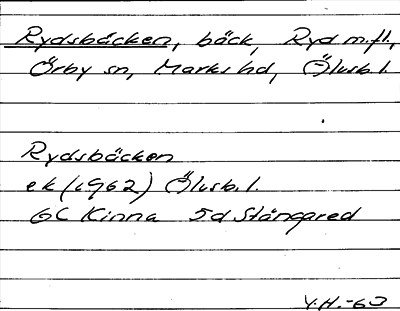 Rydsbäcken, bäck, Ryd m.fl.,
Örby sn, Marks hd, Älvsb.l.
Rydsbäcken
ek (1962) Älvsb.l.
6C Kinna 5d Stångared
Y.H.-63